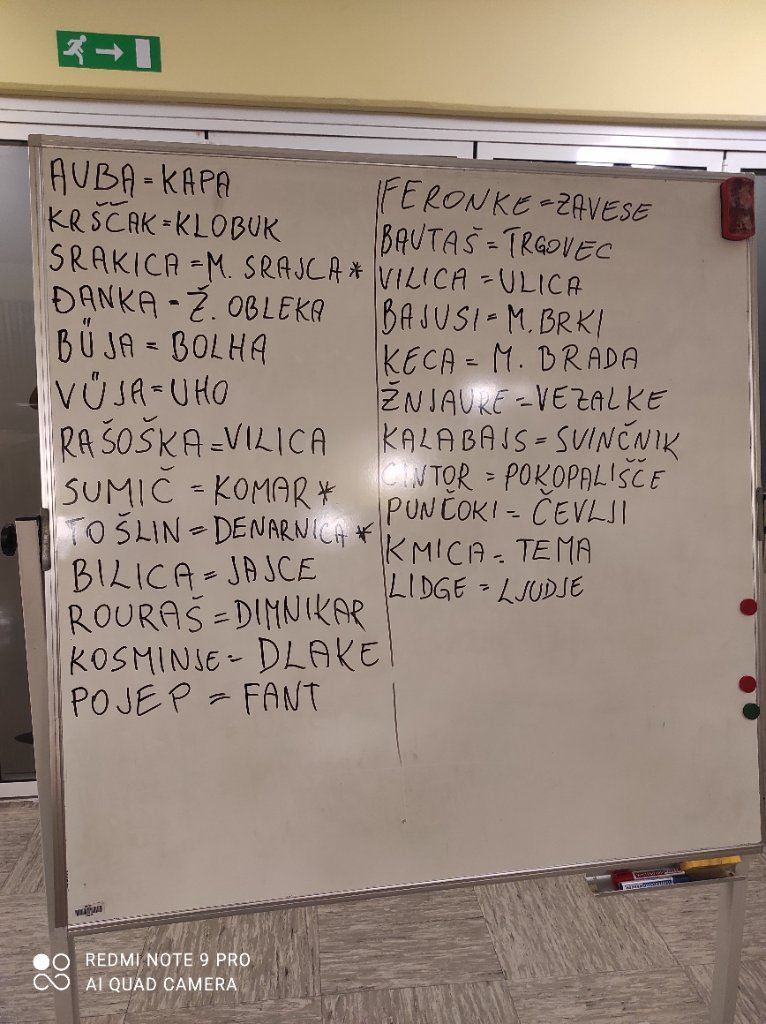 AUBA = KAPA
KRŠČAK = KLOBUK
SRAKICA = M. SRAJCA *
ĐANKA = Ž. OBLEKA
BŰJA = BOLHA
VŰJA = UHO
RAŠOŠKA = VILICA
SUMIČ = KOMAR *
TOŠLIN = DENARNICA *
BILICA = JAJCE
ROURAŠ = DIMNIKAR
KOSMINJE = DLAKE
POJEP = FANT
FERONKE = ZAVESE
BAUTAŠ = TRGOVEC
VILICA = ULICA
BAJUSI = M. BRKI
KECA = M. BRADA
ŽNJAURE = VEZALKE
KALABAJS = SVINČNIK
CINTOR = POKOPALIŠČE
PUNČOKI = ČEVLJI
KMICA = TEMA
LIDGE = LJUDJE
REDMI NOTE 9 PRO
AI QUAD CAMERA